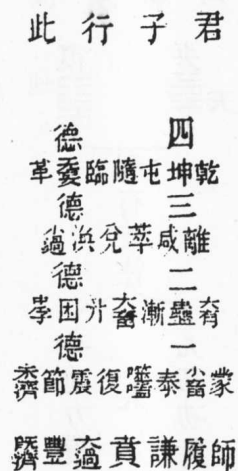 君子行此
四德
乾坤屯隨臨无妄革
三德
離咸萃兌渙小過
二德
大有蠱漸大畜升困中孚
一德
蒙小畜泰噬嗑復震節未濟
師履謙賁大過豐既濟